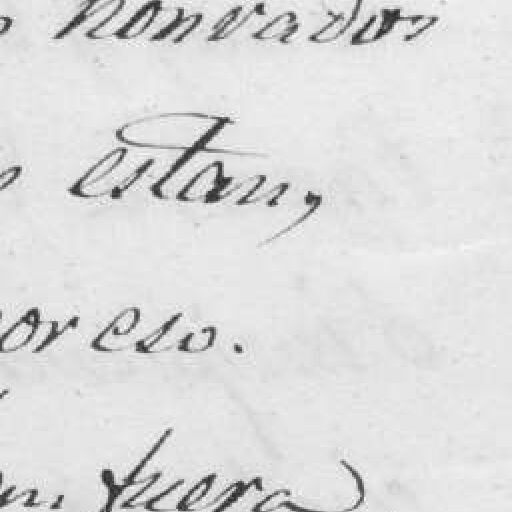 honrados
estan,
por eso.
fuera